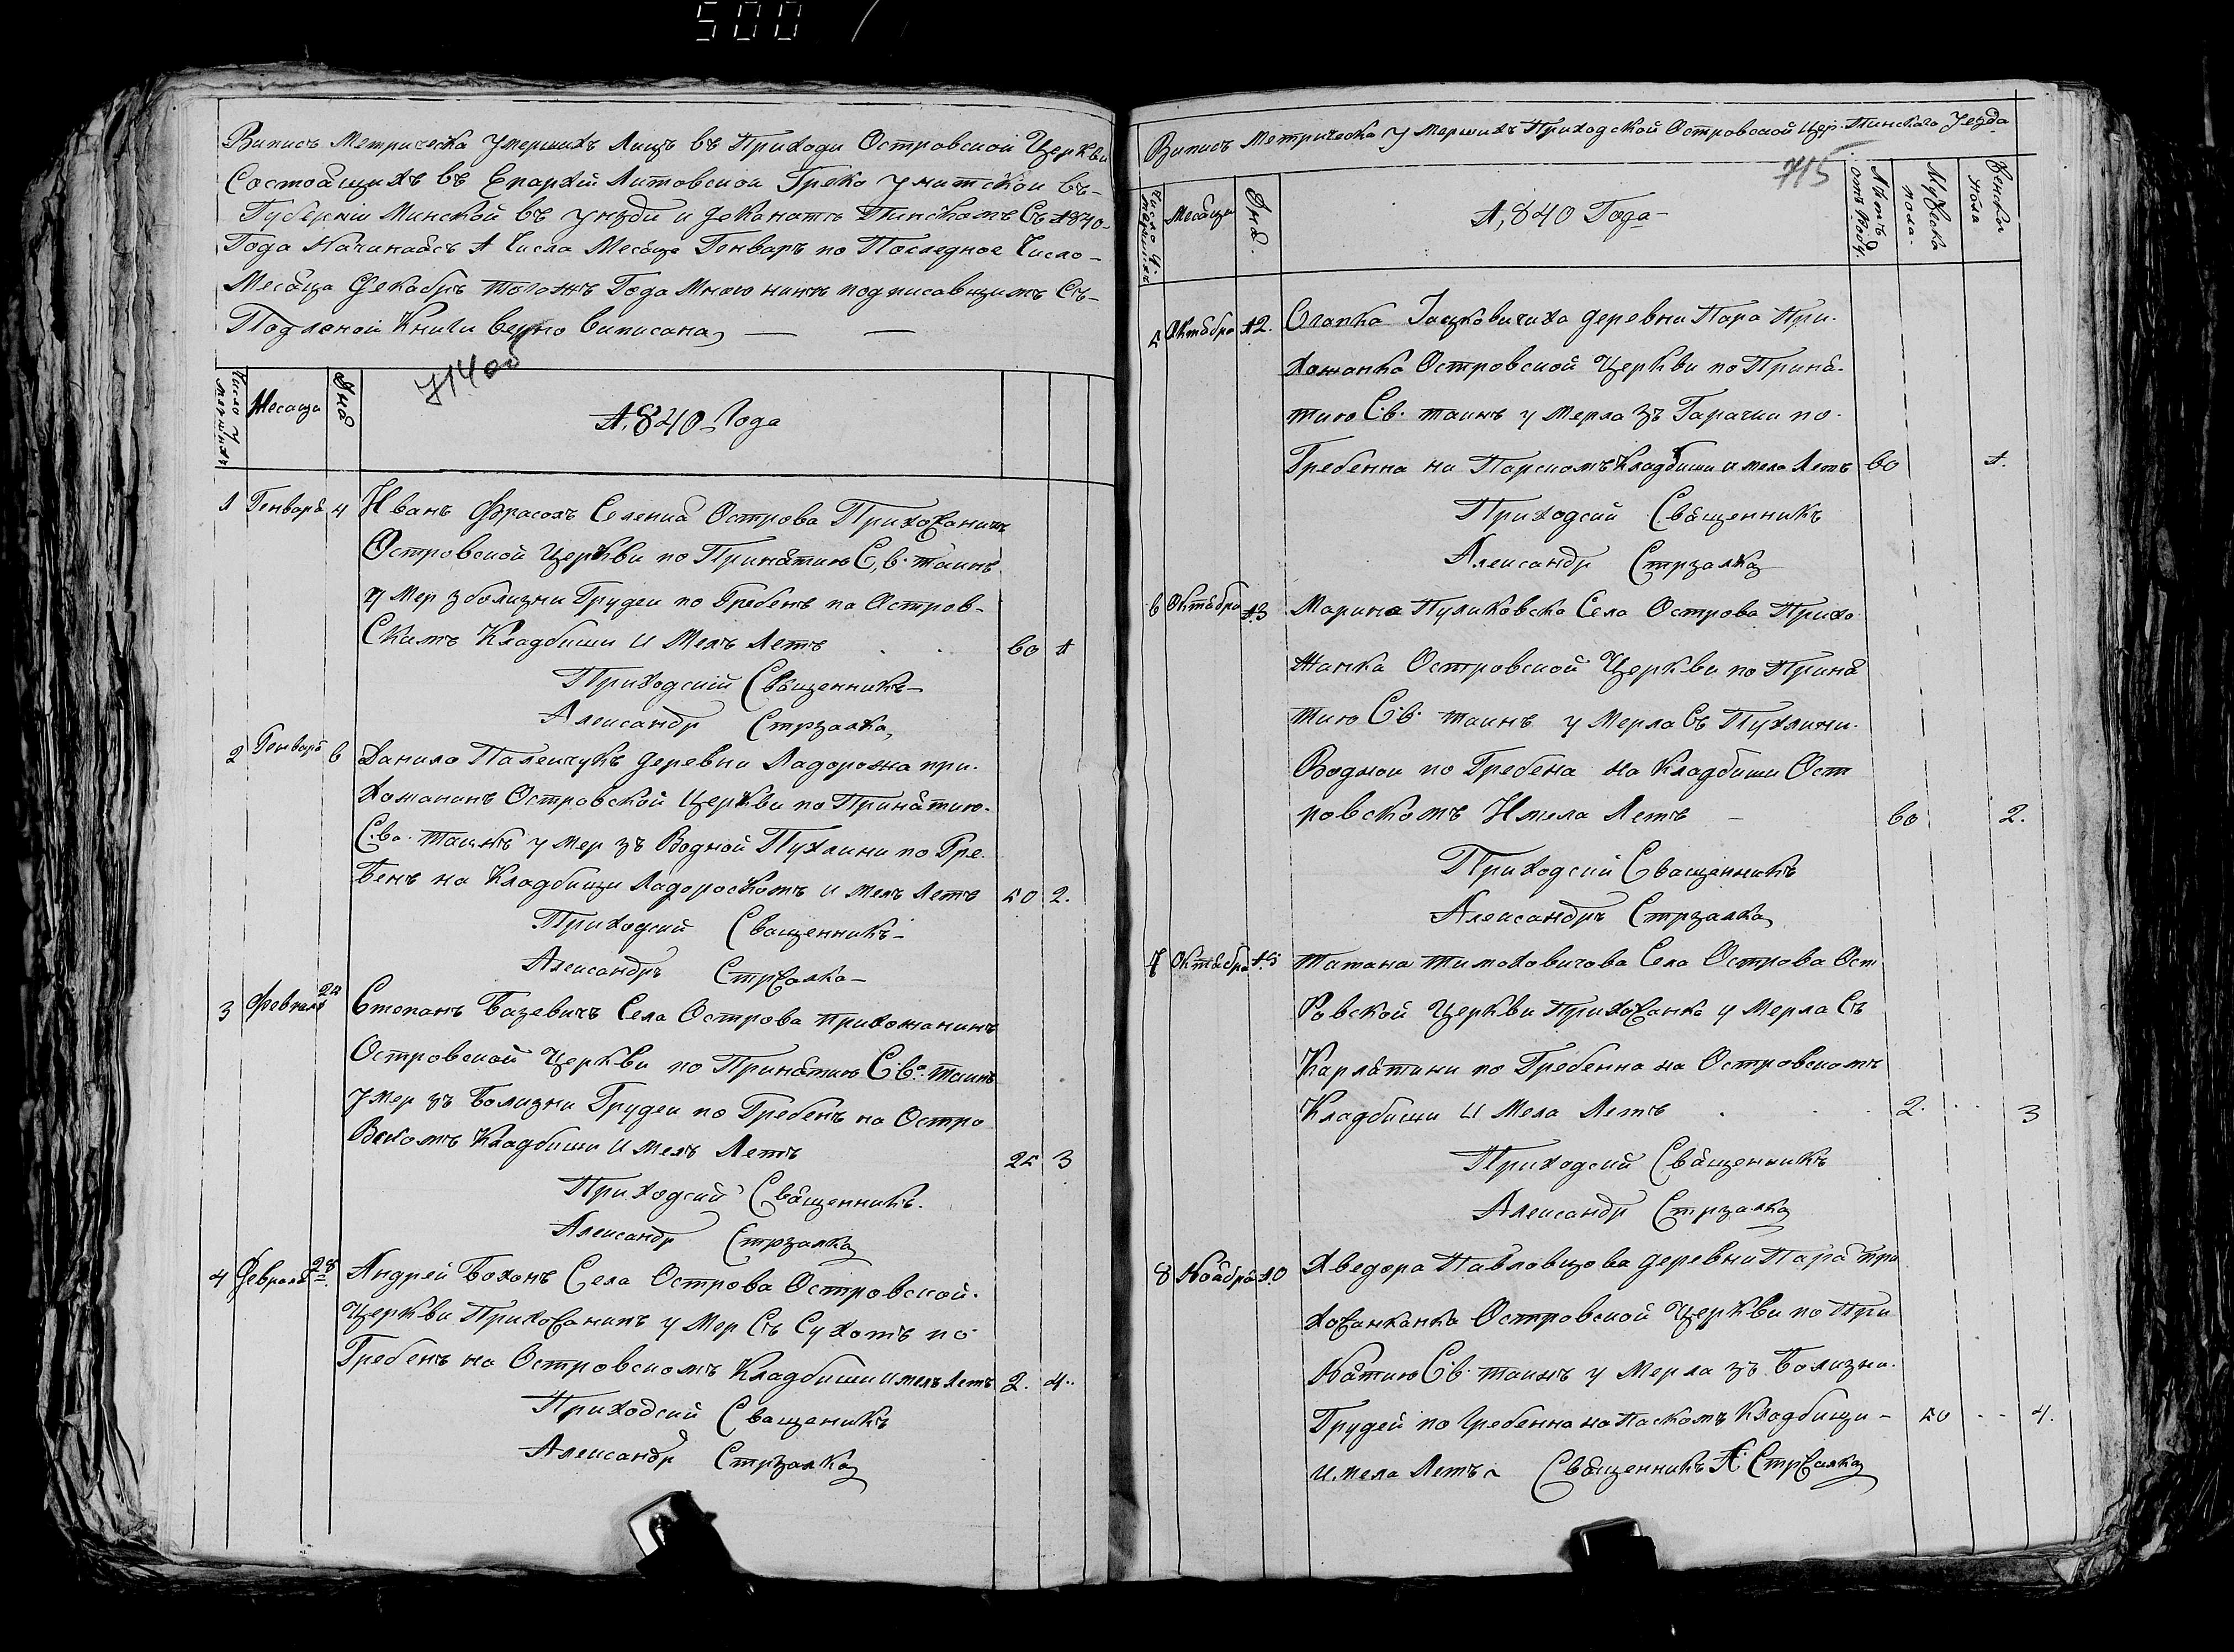 500 /
Випись Метрическа Умершихъ Лицъ въ Приходи Островской Церкви
Состоящихъ въ Епархіи Литовской Греко Унитской въ-
Губерніи Минской въ уезди и деканатъ Пинскомъ Съ 1840-
Года Начинаясъ 1 Числа Месяца Генваръ по Последное Число-
Месяца Декабръ тогожъ Года Мною ниже подписавшимъ Съ-
Подленой Книги верно виписана,
714 об
Число умершихъ
Месяца
Дня
1,840 Года
1 Генваря 4 Иванъ Фрасохъ Селенія Острова Прихожанинъ
Островской Церкви по Принятию С,в. таинъ
у Мер з болизни Грудеи по Гребенъ на Остров-
Скомъ Кладбиши И Мелъ Летъ 60 1
Приходскій Священникъ-
Александр Стрзалка,
2 Генваря 6 Данило Палейчукъ деревни Ладорожа при-
хожанинъ Островской Церкви по Принятию-
С.во. таинъ у Мер зъ Водной Пухлини по Гре-
бенъ на Кладбищи Ладороскомъ И Мелъ Летъ 50 2.
Приходский Священникъ-
Александръ Стржалка-
3 Февраля 25 Степанъ Базевичъ Села Острова прихожанинъ
Островской Церкви по Принятию С.в. таинъ
умер зъ болизни Грудеи по Гребенъ на Остро
Вскомъ Кладбиши И Мелъ Летъ 25 3
Приходский Священникъ.
Александр Стрзалка
4 Февраля 28 Андрей Бохонъ Села Острова Островской.
Церкви Прихожанинъ у Мер Съ Сухотъ по-
Гребенъ на Островскомъ Кладбиши И мелъ летъ 2. 4..
Приходский Священикъ
Александр Стрзалка
Випись Метрическа Умершихъ Приходской Островской Цер. Пинскаго Уезда
715
Число у. мершихъ
Месяца
Дня.
1,840 Года-
Летъ отъ рожд.
Мужеска пола.
Женска пола
5 Октября 12. Олапка Іацковичиха деревни Пара При-
хожанка Островской Церкви по Приня-
тию С.в. таинъ у Мерла зъ Гарачки по-
Гребенна на Парскомъ Кладбиши И мела Летъ 60 1.
Приходский Священникъ
Александр Стрзалка
6 Октября 13 Марина Пуликовска Села Острова Прихо
жанка Островской Церкви по Приня
тию С.в. таинъ у Мерла Съ Пухлини-
Воднои по Гребена на Кладбиши Ост
ровскомъ Имела Летъ - 60 2.
Приходский Священникъ
Александръ Стрзалка
7 Октября 15 Татана Тимоховичова Села Острова Ост
Ровской Церкви Прихожанка у Мерла Съ
Карлятини по Гребенна на Островскомъ
Кладбиши И Мела Летъ 2. 3
Приходский Священникъ
Александр Стрзалка
8 Ноября 10 Хведора Павловцова деревни Пара при
хожанканка Островской Церкви по При
Нятию С.в. таинъ у Мерла зъ болизни-
Грудей по Гребенна на Паскомъ Кладбищи- 50 -- 4.
И мела Летъ Священникъ А. Стржалка